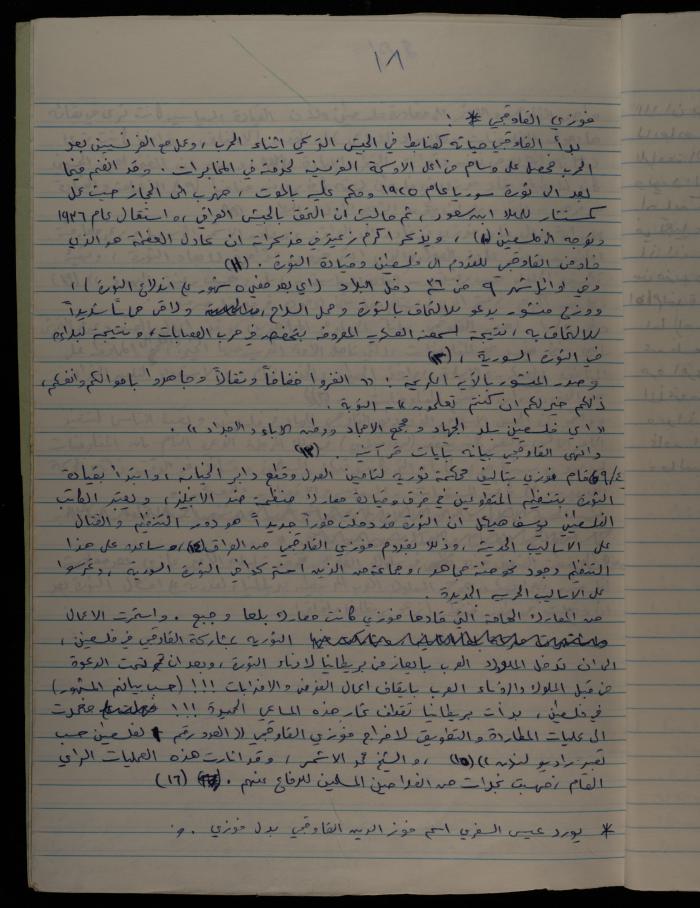 ١٨
فوزي القاوقجي * :
بدأ القاوقجي حياته كضابط في الجيش التركي اثناء الحرب ، وعمل مع الفرنسيين بعد
الحرب فحصل على وسام من اعلى الاوسمة الفرنسية لخدمته في المخابرات . وقد انضم فيما
بعد الى ثورة سوريا عام ١٩٢٥ وحكم عليه بالموت ، فهرب الى الحجاز حيث عمل
كمستشار للملك ابن سعود ، ثم ما لبث أن التحق بالجيش العراقي ، واستقال عام ١٩٣٦
وتوجه الى فلسطين ، ويذكر اكرم زعيتر في مذكراته ان عادل العظمة هو الذي
فاوض القاوقجي للقدوم الى فلسطين وقيادة الثورة . (١١)
وفي اوائل شهر ٩ من ٣٦ دخل البلاد (اي بعد مضي ٥ شهور على اندلاع الثورة) ،
ووزع منشور يدعو للالتحاق بالثورة وحمل السلاح ، ولاقى حماساً شديداً
للالتحاق به ، نتيجة لسمعته العسكرية المعروفة بتخصصه في حرب العصابات ، ونتيجة لبلاءه
في الثورة السورية ،
وصدر المنشور بالآية الكريمة : " انفروا خفافاً وثقالاً وجاهدوا باموالكم وانفسكم ،
ذلكم خير لكم ان كنتم تعلمون " - التوبة .
" الى فلسطين بلد الجهاد و مجمع الامجاد ووطن الآباء والاجداد " .
وانهى القاوقجي بيانه بآيات قرآنية . (١٣)
قام فوزي بتأليف محكمة ثورية لتأمين العدل وقطع دابر الخيانة ، وابتدأ بقيادة
الثورة بتنظيم المتطوعين في فرق وقيادة معارك منظمة ضد الانجليز ، ويعتبر الكاتب
الفلسطيني يوسف هيكل ان الثورة قد دخلت طوراً جديداً هو دور التنظيم والقتال
على الاساليب الحديثة ، وذلك بقدوم فوزي القاوقجي من العراق (١٤) ، وساعده على هذا
التنظيم وجود نحو مئة مجاهد ، وجماعته من الذين احنكتهم الثورة السورية ، وتمرسوا
على الاساليب الحربية الجديدة .
من المعارك الحامية التي قادها فوزي كانت معارك بلعا و جبع . واستمرت الاعمال
الثورية بمشاركة القاوقجي في فلسطين ،
الى ان تدخل الملوك العرب بايعاز من بريطانيا لانهاء الثورة ، وبعد ان تمت الدعوة
من قبل الملوك والرؤساء العرب بايقاف اعمال العنف والاضرابات !!! (حسب بيانهم المشهور)
في فلسطين ، بدأت بريطانيا تقطف ثمار هذه المساعي الحميدة !!! فعمدت
الى عمليات المطاردة والتطويق لاخراج فوزي القاوقجي " العدو رقم ١ لفلسطين حسب
تعبير راديو لندن " (١٥) ، والشيخ محمد الاشمر ، وقد اثارت هذه العمليات الرأي
العام ، فهبت نجدات من الفلاحين المسلحين للدفاع عنهم . (١٦)
* يورد عيسى السفري اسم فوز الدين القاوقجي بدل فوزي .